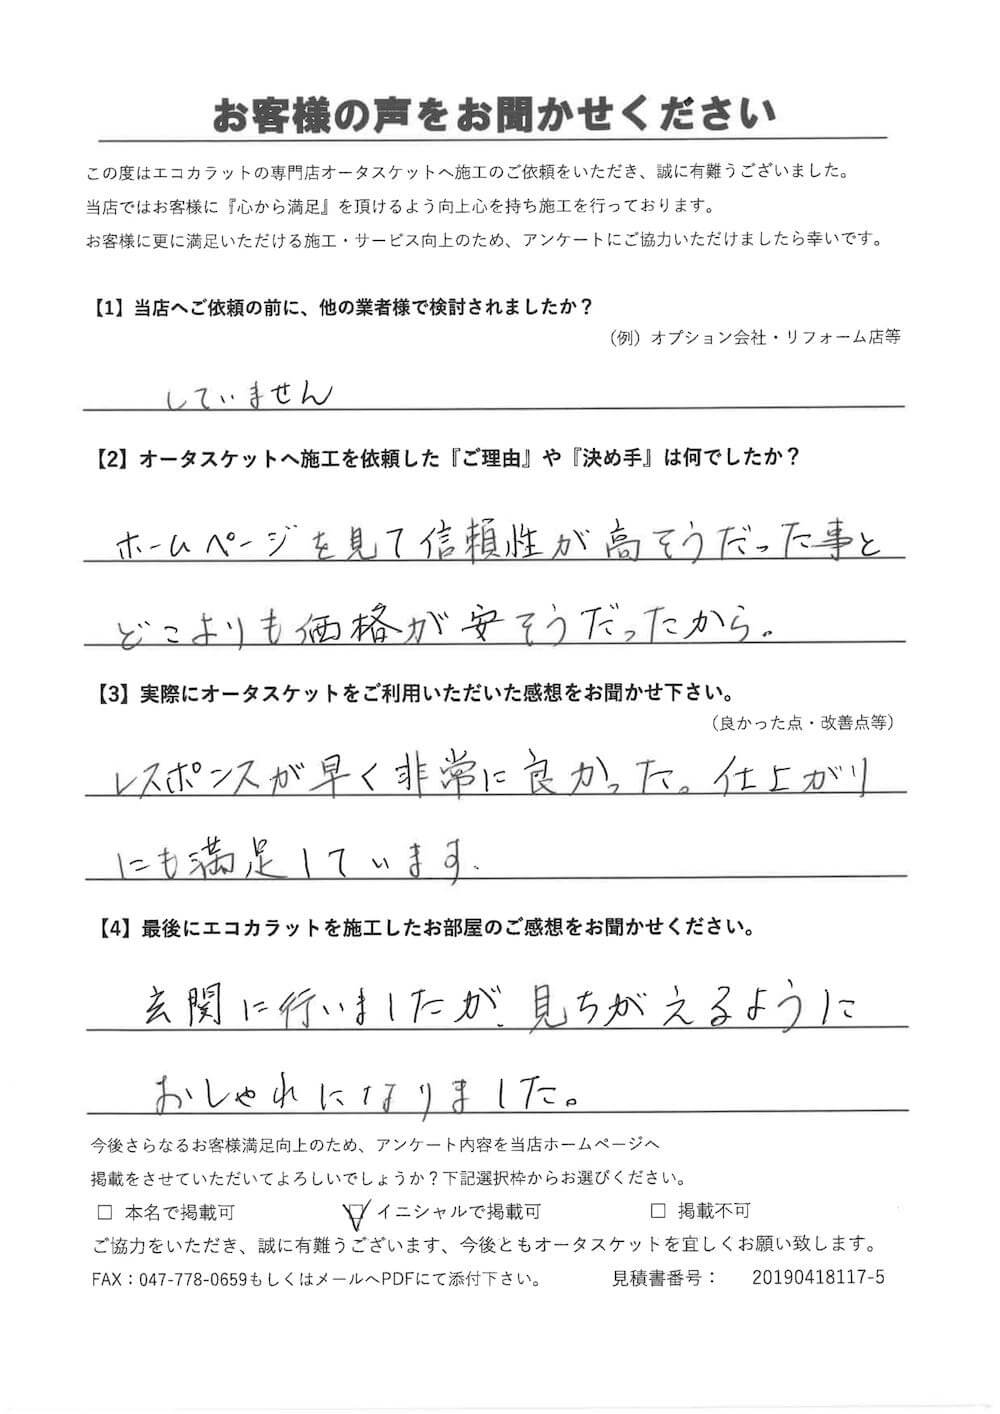 お客様の声をお聞かせください
この度はエコカラットの専門店オータスケットへ施工のご依頼をいただき、誠に有難うございました。
当店ではお客様に『心から満足』を頂けるよう向上心を持ち施工を行っております。
お客様に更に満足いただける施工・サービス向上のため、アンケートにご協力いただけましたら幸いです。
【1】当店へご依頼の前に、他の業者様で検討されましたか？
（例）オプション会社・リフォーム店等
していません
【2】オータスケットへ施工を依頼した『ご理由』や『決め手』は何でしたか？
ホームページを見て信頼性が高そうだった事と
どこよりも価格が安そうだったから。
【3】実際にオータスケットをご利用いただいた感想をお聞かせ下さい。
（良かった点・改善点等）
レスポンスが早く非常に良かった。仕上がり
にも満足しています.
【4】最後にエコカラットを施工したお部屋のご感想をお聞かせください。
玄関に行いましたが、見ちがえるように
おしゃれになりました。
今後さらなるお客様満足向上のため、アンケート内容を当店ホームページへ
掲載をさせていただいてよろしいでしょうか？下記選択枠からお選びください。
□ 本名で掲載可 ☑ イニシャルで掲載可 □ 掲載不可
ご協力をいただき、誠に有難うございます、今後ともオータスケットを宜しくお願い致します。
FAX：047-778-0659もしくはメールへPDFにて添付下さい。 見積書番号： 20190418117-5